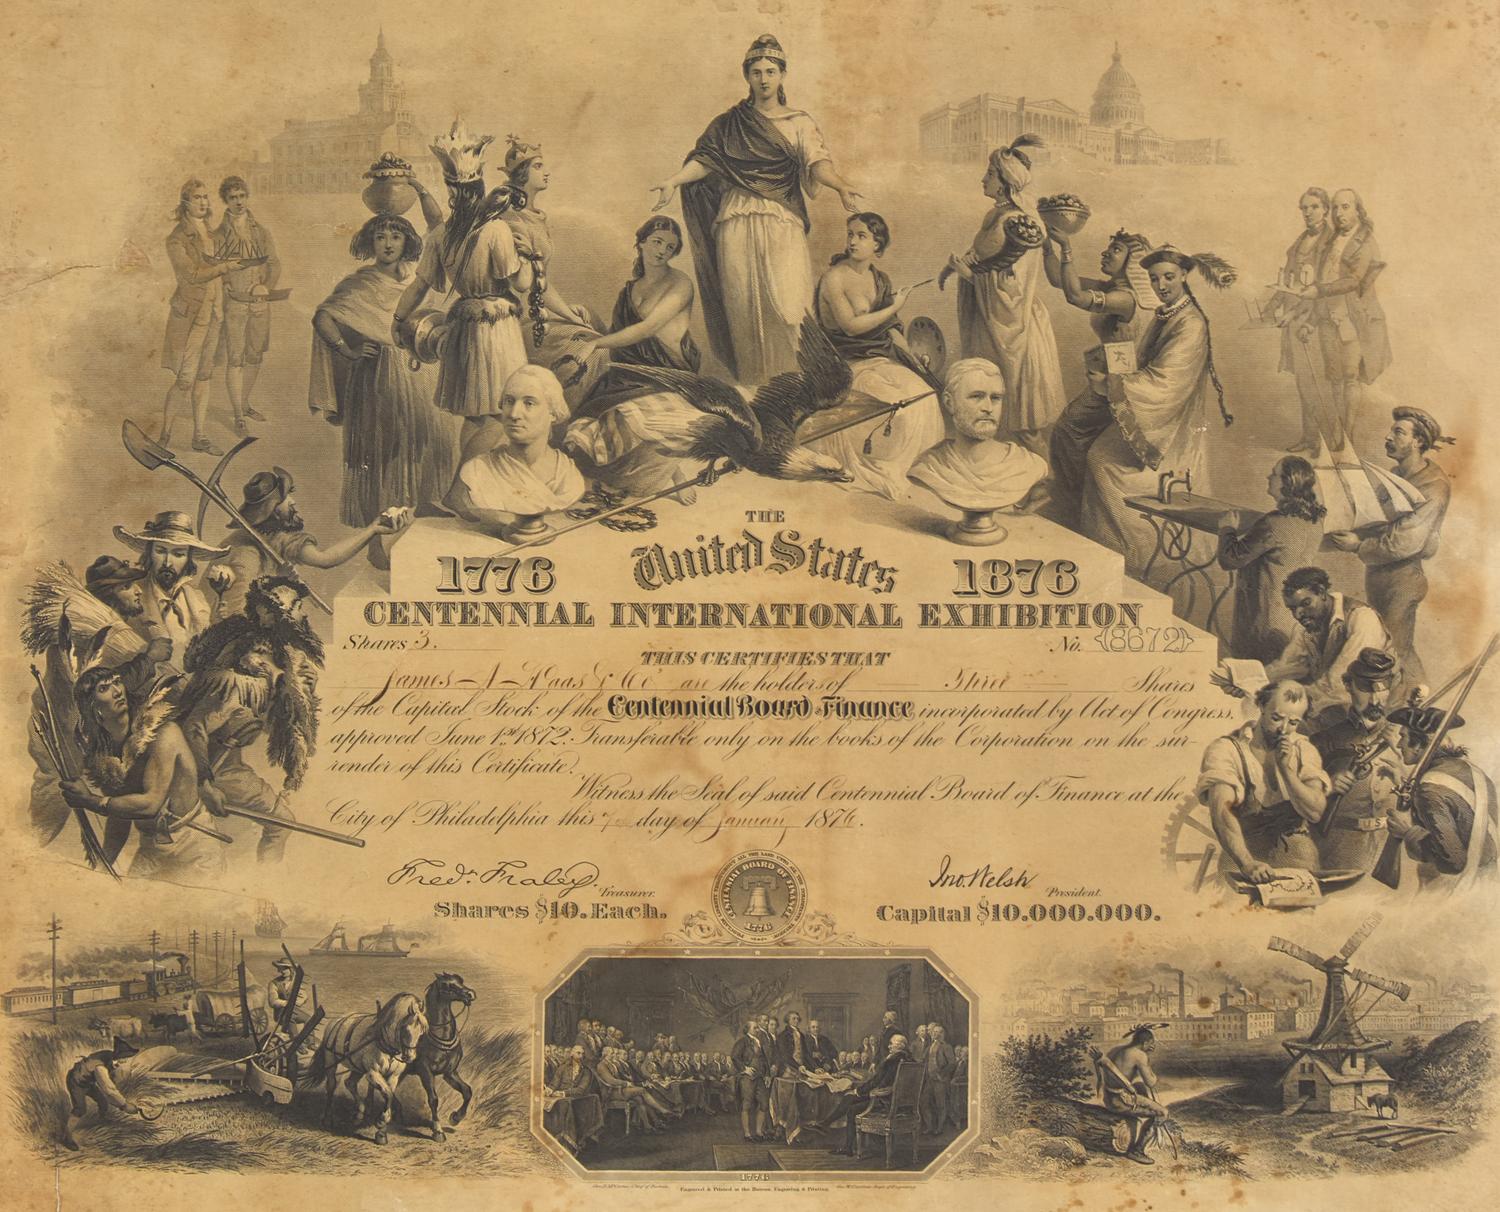 THE
United States
1776 1876
CENTENNIAL INTERNATIONAL EXHIBITION
Shares 3. No. 18672
THIS CERTIFIES THAT
James A Haas & Co are the holders of Three Shares
of the Capital Stock of the Centennial Board of Finance, incorporated by Act of Congress,
approved June 1st 1872. Transferable only on the books of the Corporation on the sur-
render of this Certificate.
Witness the Seal of said Centennial Board of Finance at the
City of Philadelphia this 7 day of January 1876.
Fredk. Fraley. Jno. Welsh
Treasurer. President.
Shares $10. Each. Capital $10.000.000.
CENTENNIAL BOARD OF FINANCE
1776
U S
1776
Engraved & Printed at the Bureau, Engraving & Printing.